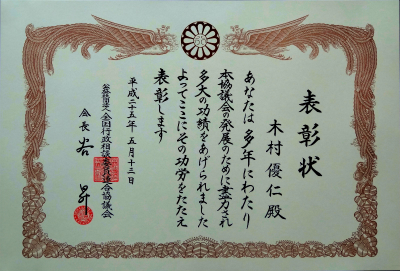 表彰状
木村優仁殿
あなたは多年にわたり
本協議会の発展のために尽力され
多大の功績をあげられました
よってここにその功労をたたえ
表彰します
平成二十五年五月十三日
全国行政相談委員連合協議会
会長 谷 昇